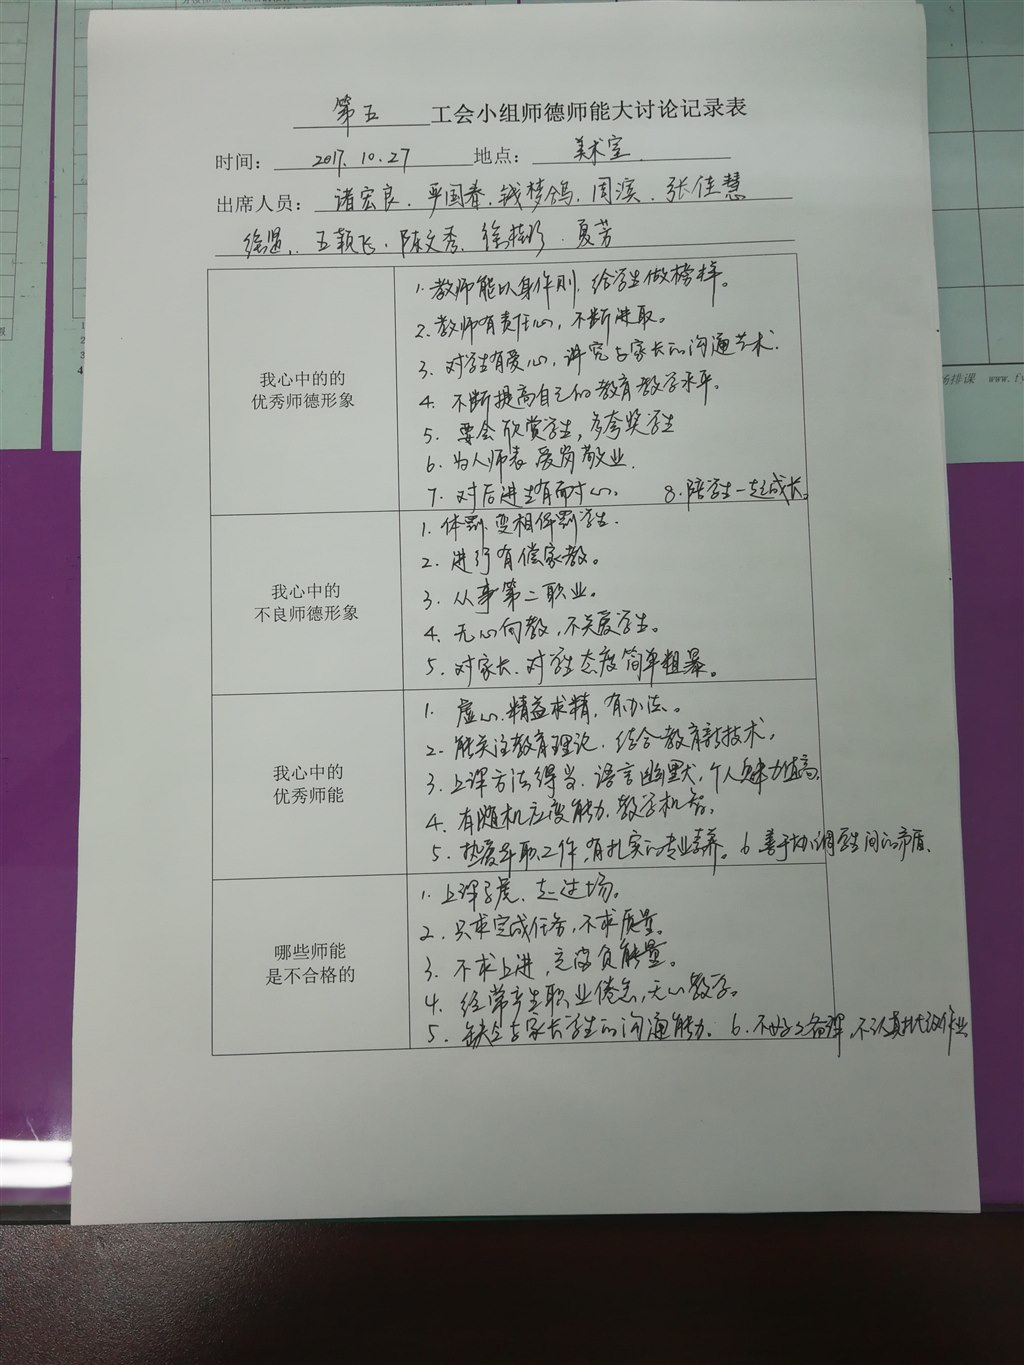 第五 工会小组师德师能大讨论记录表
时间： 2017.10.27 地点： 美术室.
出席人员： 诸宏良.平国春.钱梦鸽.周滨.张佳慧
王颖飞.陈文秀.徐桂珍.夏芳
我心中的的
优秀师德形象
1.教师能以身作则,给学生做榜样。
2.教师有责任心,不断进取。
3.对学生有爱心,讲究与家长的沟通艺术.
4.不断提高自己的教育教学水平。
5.要会欣赏学生,多夸奖学生
6.为人师表 爱岗敬业.
7.对后进生有耐心. 8.陪学生一起成长。
我心中的
不良师德形象
1.体罚.变相体罚学生.
2.进行有偿家教。
3.从事第二职业。
4.无心向教,不关爱学生。
5.对家长.对学生态度简单粗暴。
我心中的
优秀师能
1.虚心.精益求精,有办法。
2.能关注教育理论.结合教育新技术。
3.上课方法得当.语言幽默,个人魅力值高.
4.有随机应变能力.教学机智。
5.热爱本职工作,有扎实的专业素养。6.善于协调学生间的矛盾.
哪些师能
是不合格的
1.上课 走过场。
2.只求完成任务,不求质量。
3.不求上进, 负能量。
4.经常产生职业倦怠,无心教学。
5.缺乏与家长学生的沟通能力. 6.不好好备课,不认真批改作业.
场排课 www.fy